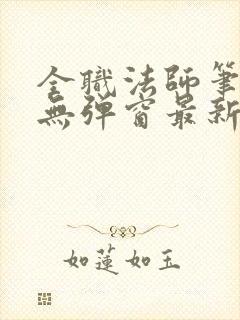 全職法師筆
無彈窗最新
如蓮如玉